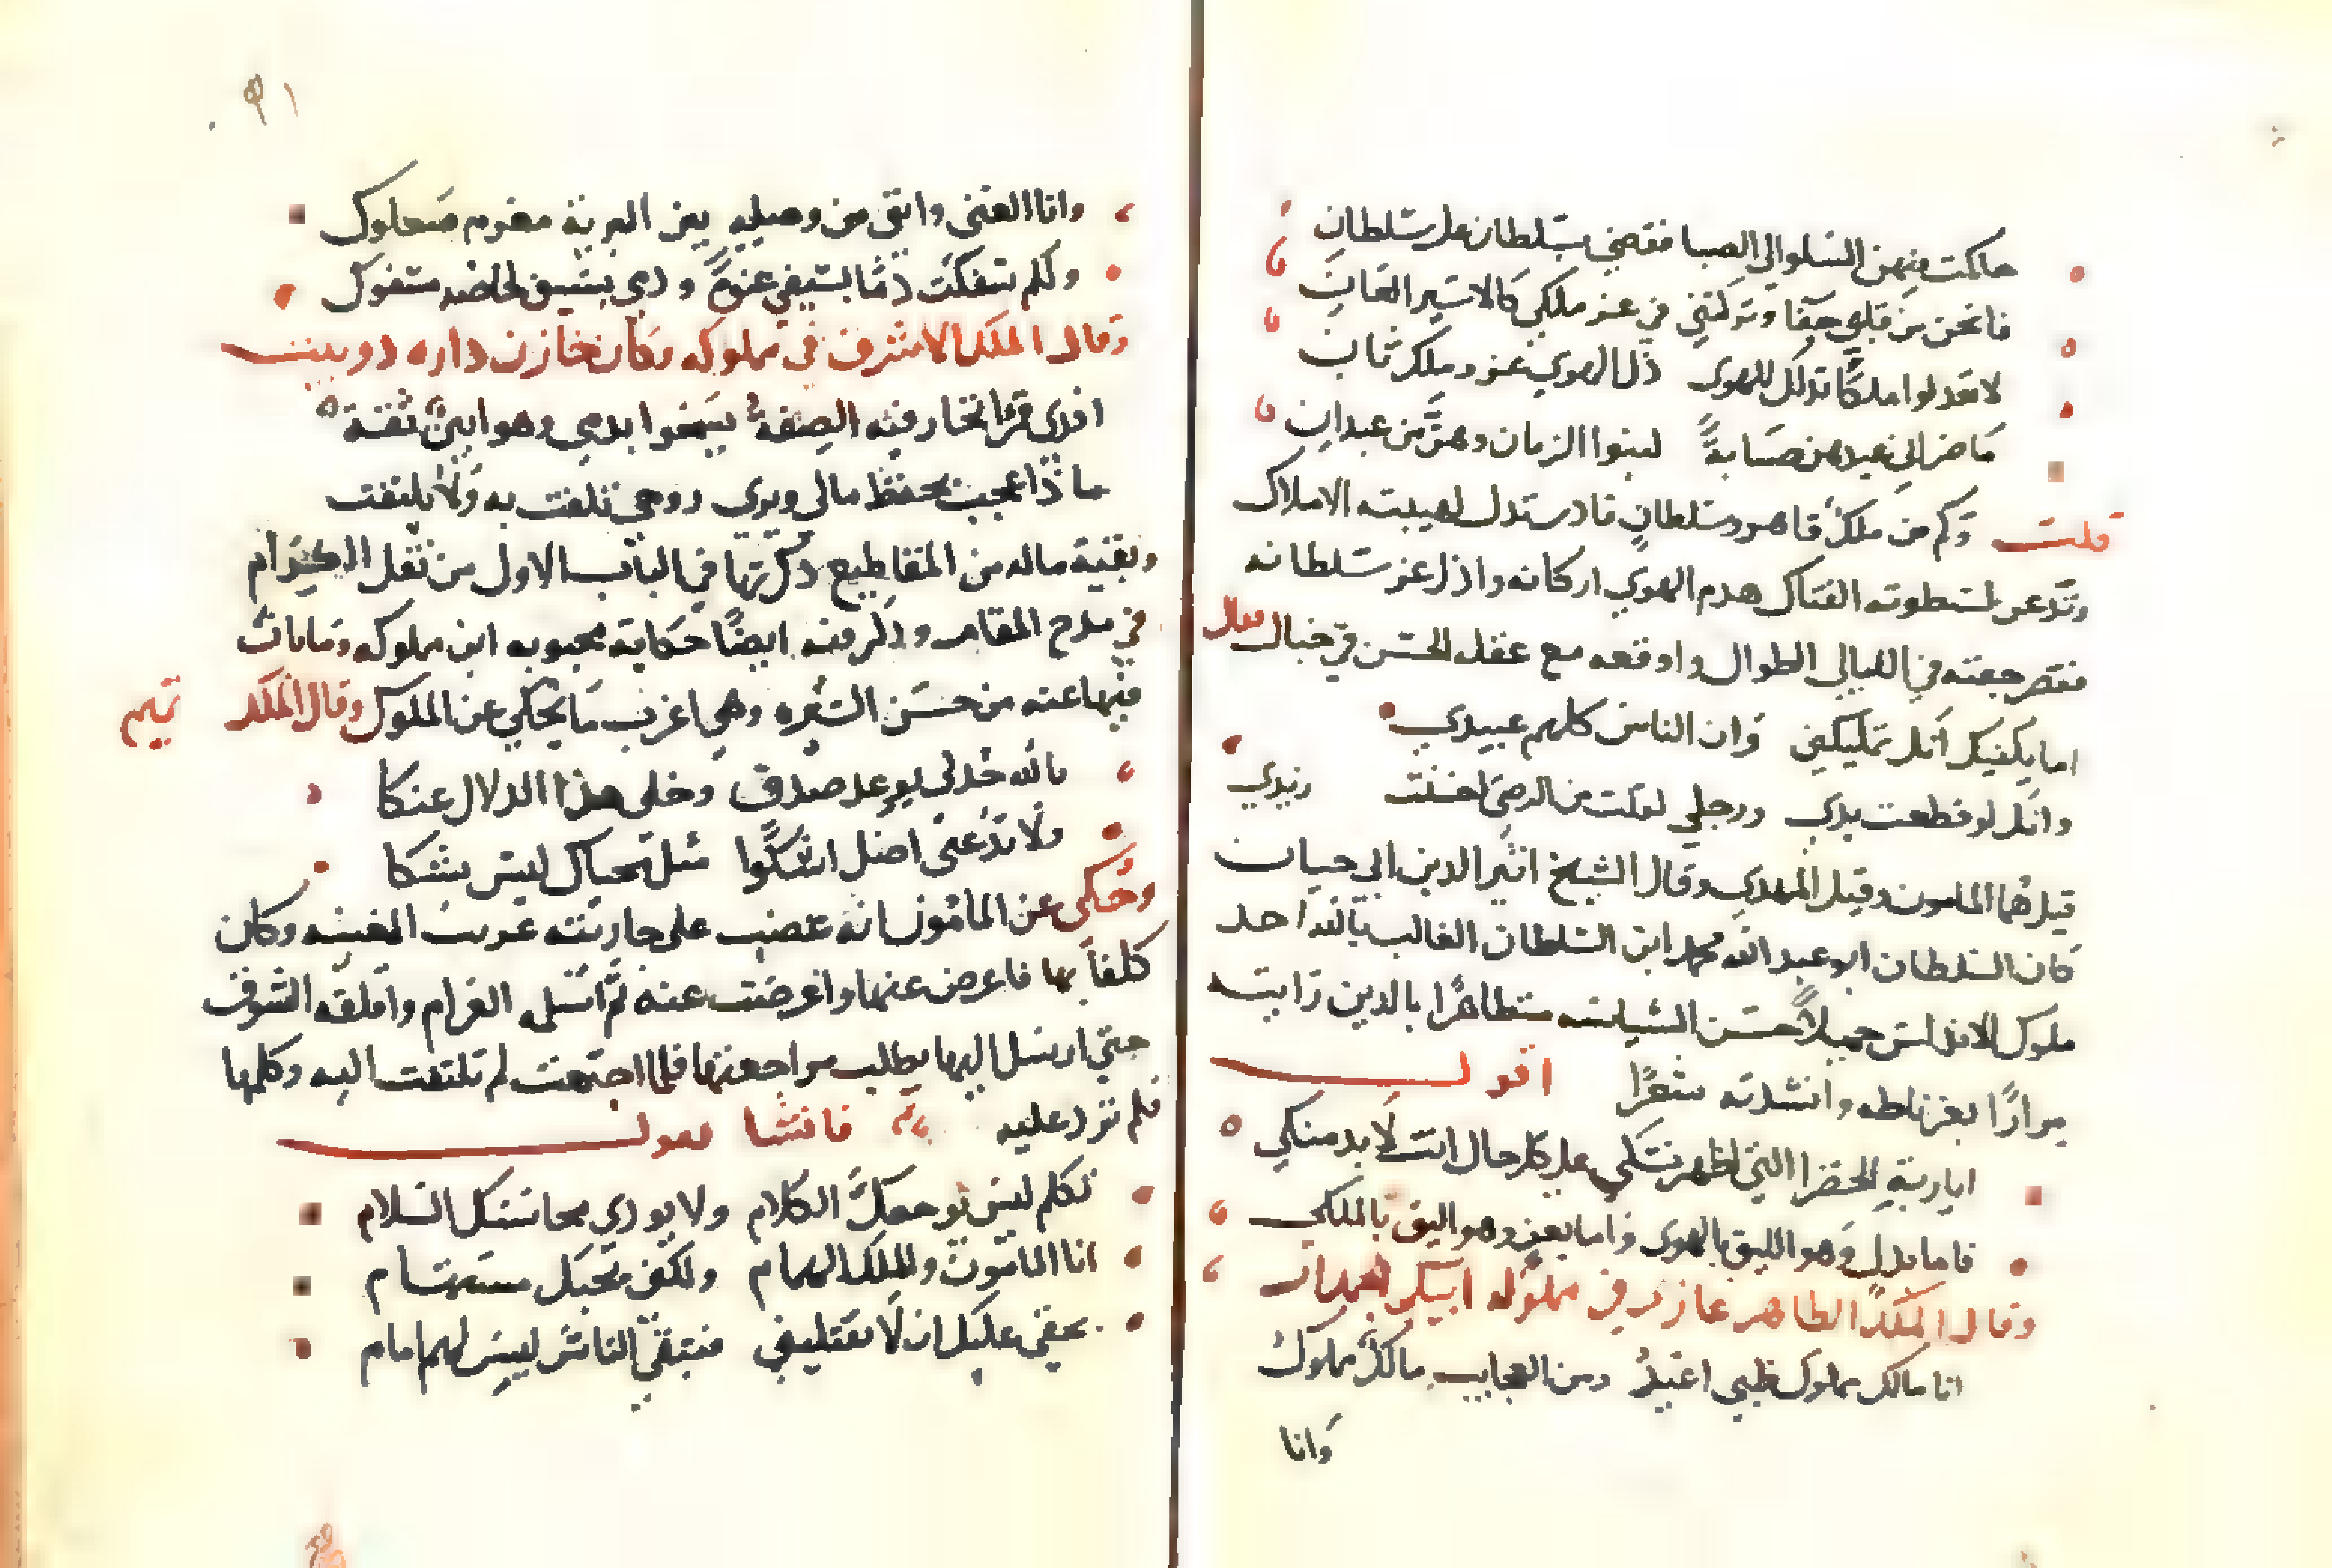 حاكمت فيهن السلو الي الصبا فقضي بسلطان علي سلطان
فابحن من قلبي جفا وتركنني في عز ملكي كالاسير العان
لا تعدلوا ملكا تدلل للهوى ذل الهوي عز وملك ثان
ما ضر اني عبدهن صبابة لبنوا الزمان وهن من عبدان
قلت وكم من ملك قاهر وسلطان قادر ستدل لهيبته الاملاك
وتدعر لسطوته الفتاك هدم الهوي اركانه واذل عز سلطانه
فتضرجعته في الليالي الطوال واوقعه مع عقله الحسن في خبال فقال
اما يكفيك انك تمليكني وان الناس كلهم عبيدي
وانك لو قطعت يدي ورجلي لقلت من الرضي احسنت زيدي
قيل هما للمامون وقيل المهدي وقال الشيخ اثير الدين ابي حيان
كان السلطان ابو عبد الله محمد ابن السلطان الغالب بالله احد
ملوك الاندلس جميلا حسن الشيات متظاهرا بالدين رايته
مرارا بغرناطه وانشدته شعرا اقول
ايا ربة الخضرا التي اظهر نسكي علي كل حال انت لا بد منكي
فاما بذل وهو اليق بالهوى واما بعز وهو اليق بالملكي
وقال الملك الظاهر غازي في مملوكه ايبك الجمدار
انا مالك مملوك ظبي اغيد ومن العجايب مالك مملوك
وانا
٩١
وانا الغني وانني من وصله بين البرية مغرم صعلوك
وكلم سفكت دما بسيفي عنوة ودمي بسيف لحاضه مسفوك
وقال الملك الاشرف في مملوكه وكان خازن داره دوبيت
افدي قمرا تحار فيه الصفة يسخوا بدمي وهو امين ثقة
ماذا عجب يحفظ مالي ويرى روحي تلفت به ولا يلتفت
وبقية ماله من المقاطيع ذكرتها في الباب الاول من نقل الكرام
في مدح المقام وذكر فيه ايضا حكاية محبوبه ابن مملوكه وما بات
فيها عنه من حسن السيره وهي اغرب ما يحكي عن الملوك وقال الملك تميم
بالله خد لي بوعد صدق وخلي هذا الدلال عنكا
ولا تدعني اضل اشكوا مثلي محياك ليس يشكا
وحكى عن المامون انه غضب على جاريته عريب المغنيه وكان
كلفا بها فاعرض عنها واعرضت عنه ثم اسلمه الغرام واقلقه الشوق
حتي ارسل اليها يطلب مراجعتها فلما اجتمعت لم تلتفت اليه وكلمها
فلم ترد عليه فانشا يقول
تكلم ليس يوجعك الكلام ولا يودي محاسنك السلام
انا المامون والملك الهمام ولكني بحبك مستهام
بحقي عليك ان لا تقتليني فتبقي الناس ليس لهم امام